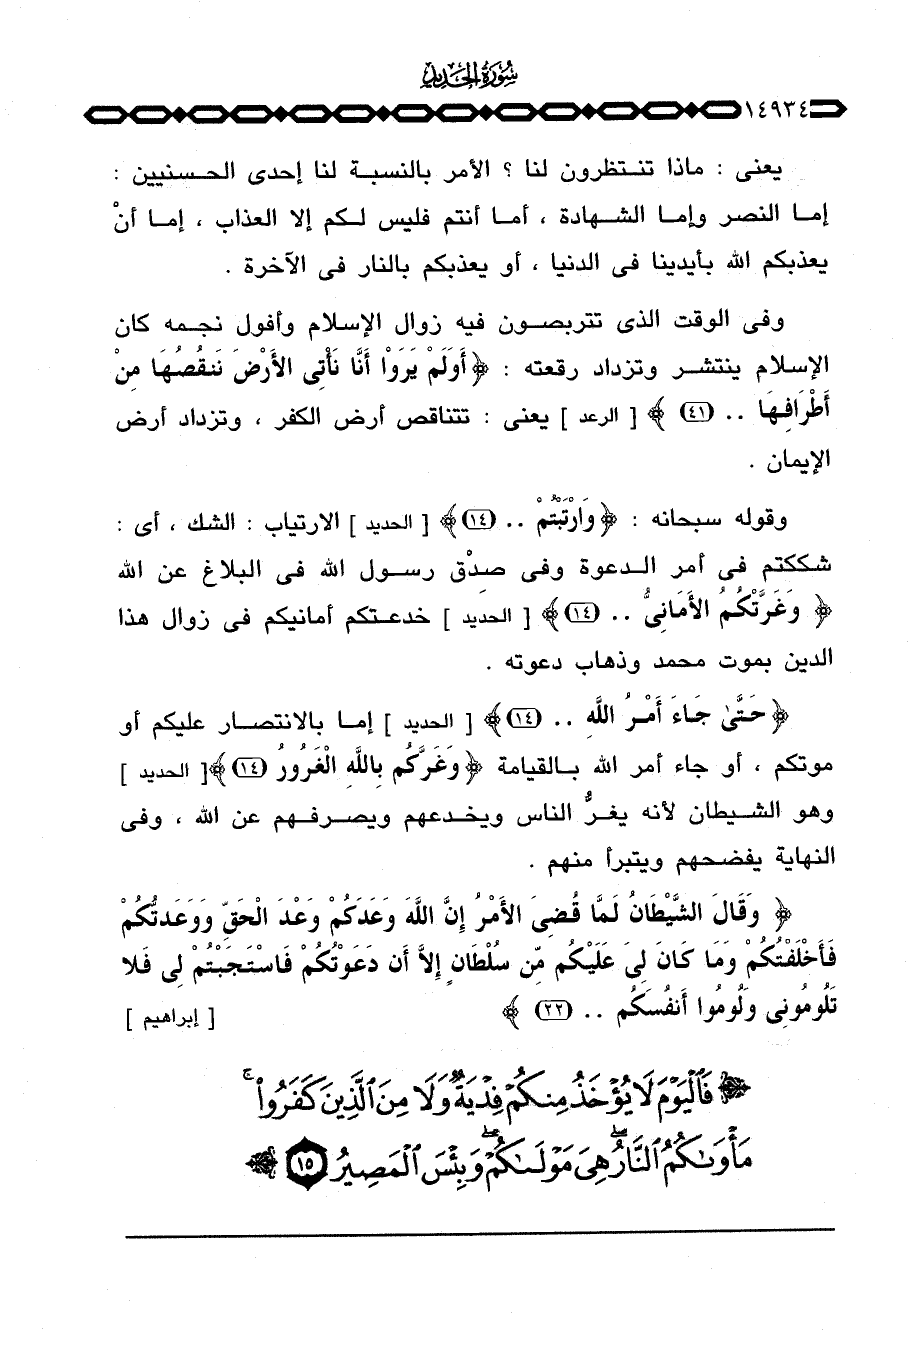 سورة الحديد
١٤٩٣٤
يعنى : ماذا تنتظرون لنا ؟ الأمر بالنسبة لنا إحدى الحسنيين :
إما النصر وإما الشهادة ، أما أنتم فليس لكم إلا العذاب ، إما أنْ
يعذبكم الله بأيدينا فى الدنيا ، أو يعذبكم بالنار فى الآخرة .
وفى الوقت الذى تتربصون فيه زوال الإسلام وأفول نجمه كان
الإسلام ينتشر وتزداد رقعته : ﴿أَوَلَمْ يَرَوْا أَنَّا نَأْتِى الأَرْضَ نَنقُصُهَا مِنْ
أَطْرَافِهَا .. (٤١) ﴾ [ الرعد ] يعنى : تتناقص أرض الكفر ، وتزداد أرض
الإيمان .
وقوله سبحانه : ﴿وَارْتَبْتُمْ .. (١٤)﴾ [ الحديد ] الارتياب : الشك ، أى :
شككتم فى أمر الدعوة وفى صِدْق رسول الله فى البلاغ عن الله
﴿ وَغَرَّتْكُمُ الأَمَانِىُّ .. (١٤)﴾ [ الحديد ] خدعتكم أمانيكم فى زوال هذا
الدين بموت محمد وذهاب دعوته .
﴿حَتَّىٰ جَاءَ أَمْرُ اللَّهِ .. (١٤)﴾ [ الحديد ] إما بالانتصار عليكم أو
موتكم ، أو جاء أمر الله بالقيامة ﴿وَغَرَّكُم بِاللَّهِ الْغَرُورُ (١٤)﴾[ الحديد ]
وهو الشيطان لأنه يغرُّ الناس ويخدعهم ويصرفهم عن الله ، وفى
النهاية يفضحهم ويتبرأ منهم .
﴿ وَقَالَ الشَّيْطَانُ لَمَّا قُضِىَ الأَمْرُ إِنَّ اللَّهَ وَعَدَكُمْ وَعْدَ الْحَقِّ وَوَعَدتُّكُمْ
فَأَخْلَفْتُكُمْ وَمَا كَانَ لِىَ عَلَيْكُم مِّن سُلْطَانٍ إِلاَّ أَن دَعَوْتُكُمْ فَاسْتَجَبْتُمْ لِى فَلا
تَلُومُونِى وَلُومُوا أَنفُسَكُم .. (٢٢) ﴾ [ إبراهيم ]
﴿ فَٱلْيَوْمَ لَا يُؤْخَذُ مِنكُمْ فِدْيَةٌ وَلَا مِنَ ٱلَّذِينَ كَفَرُوا۟ ۚ
مَأْوَىٰكُمُ ٱلنَّارُ ۖ هِىَ مَوْلَىٰكُمْ ۖ وَبِئْسَ ٱلْمَصِيرُ (١٥) ﴾